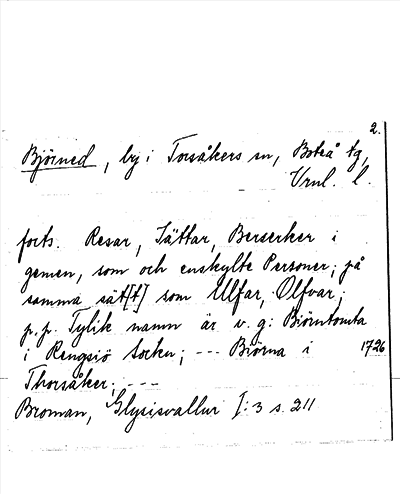 2.
Björned, by i Torsåkers sn, Boteå tg,
Vrnl. l.
forts. Resar, Jättar, Berserker i
gemen, som och enskylte Personer; på
samma sät[t] som Ulfar, Olfvar;
p.p. Tylik namn är v.g: Biörntomta
i Rengsiö Socken; --- Biörna i 1726
Thorsåker; ---
Broman, Glysisvallur I: 3 s. 211